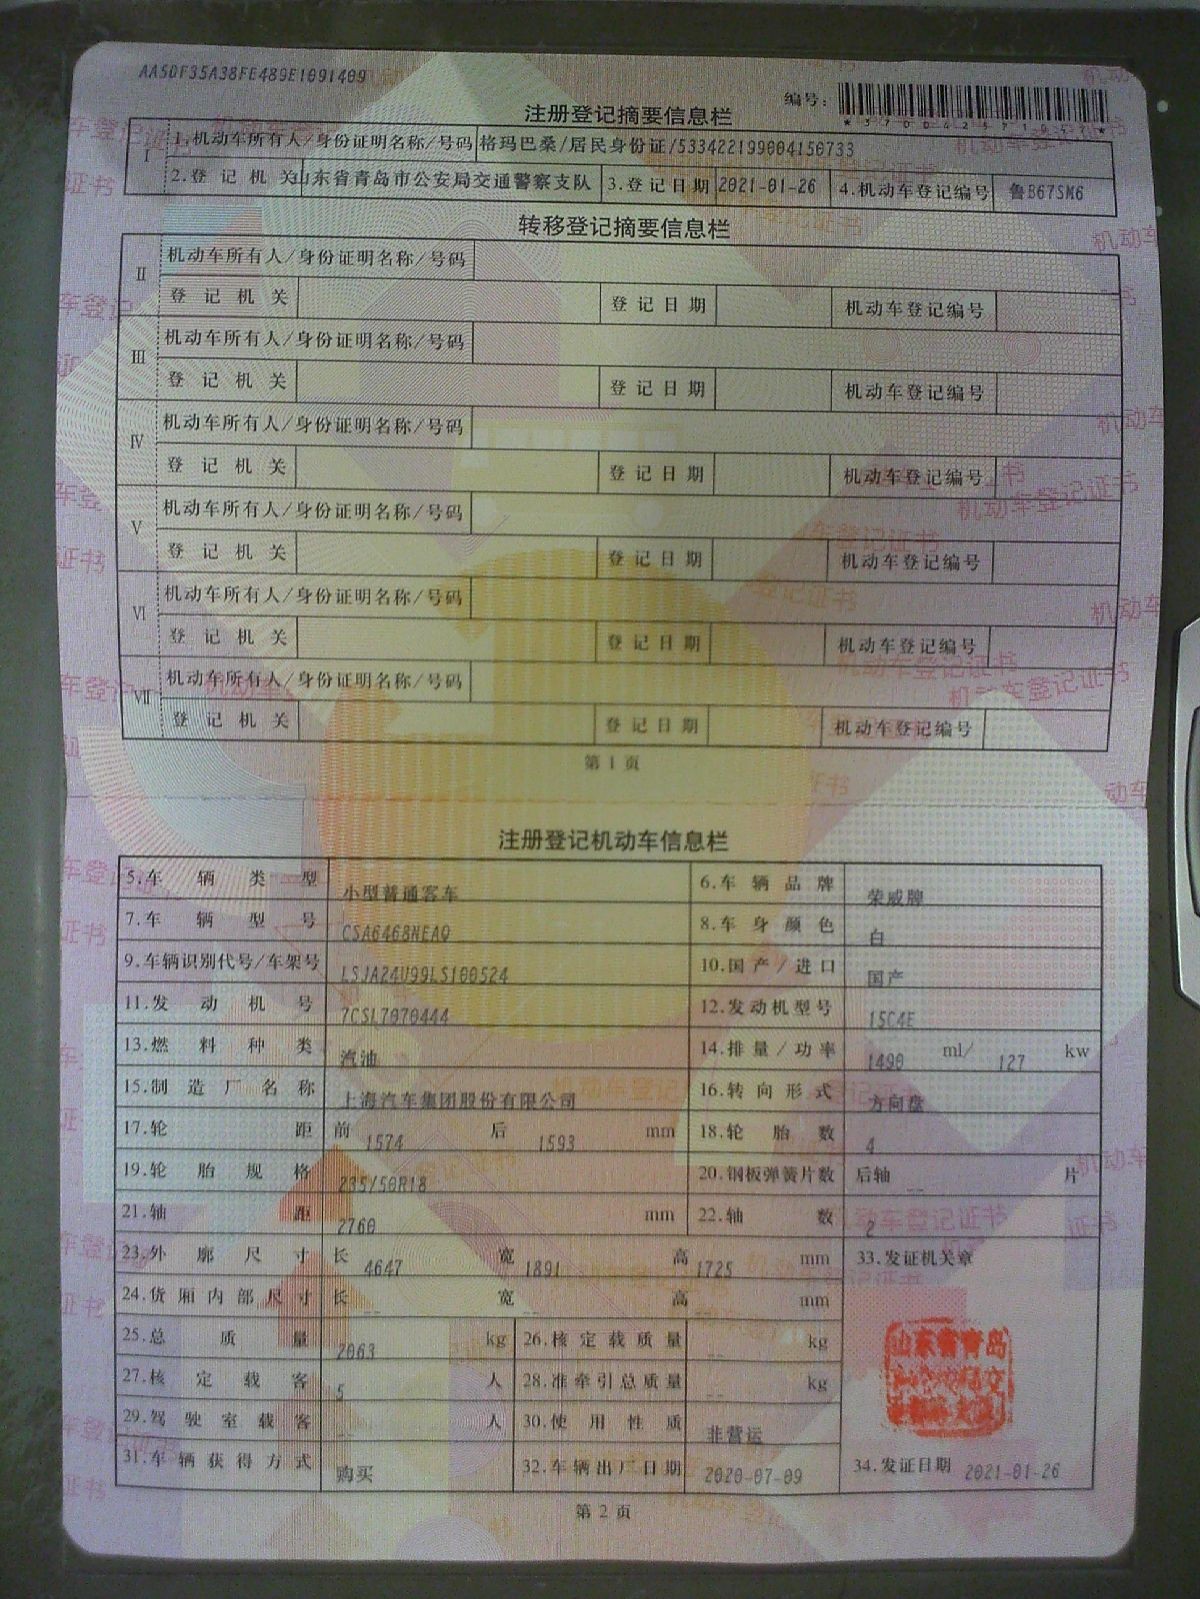 AA50F35A38FE489E1091409
编号:
*370042571057*
注册登记摘要信息栏
I 1.机动车所有人/身份证明名称/号码 格玛巴桑/居民身份证/533422199004150733
2.登记机关 山东省青岛市公安局交通警察支队 3.登记日期 2021-01-26 4.机动车登记编号 鲁B67SM6
转移登记摘要信息栏
II 机动车所有人/身份证明名称/号码
登记机关 登记日期 机动车登记编号
III 机动车所有人/身份证明名称/号码
登记机关 登记日期 机动车登记编号
IV 机动车所有人/身份证明名称/号码
登记机关 登记日期 机动车登记编号
V 机动车所有人/身份证明名称/号码
登记机关 登记日期 机动车登记编号
VI 机动车所有人/身份证明名称/号码
登记机关 登记日期 机动车登记编号
VII 机动车所有人/身份证明名称/号码
登记机关 登记日期 机动车登记编号
第1页
注册登记机动车信息栏
5.车辆类型 小型普通客车 6.车辆品牌 荣威牌
7.车辆型号 CSA6468NEAQ 8.车身颜色 白
9.车辆识别代号/车架号 LSJA24U99LS100524 10.国产/进口 国产
11.发动机号 7CSL7070444 12.发动机型号 15C4E
13.燃料种类 汽油 14.排量/功率 1490 ml/ 127 kw
15.制造厂名称 上海汽车集团股份有限公司 16.转向形式 方向盘
17.轮距 前 1574 后 1593 mm 18.轮胎数 4
19.轮胎规格 235/50R18 20.钢板弹簧片数 后轴 -- 片
21.轴距 2760 mm 22.轴数 2
23.外廓尺寸 长 4647 宽 1891 高 1725 mm 33.发证机关章
24.货厢内部尺寸 长 -- 宽 -- 高 -- mm
25.总质量 2063 kg 26.核定载质量 -- kg
27.核定载客 5 人 28.准牵引总质量 -- kg
29.驾驶室载客 -- 人 30.使用性质 非营运
31.车辆获得方式 购买 32.车辆出厂日期 2020-07-09 34.发证日期 2021-01-26
山东省青岛
第2页